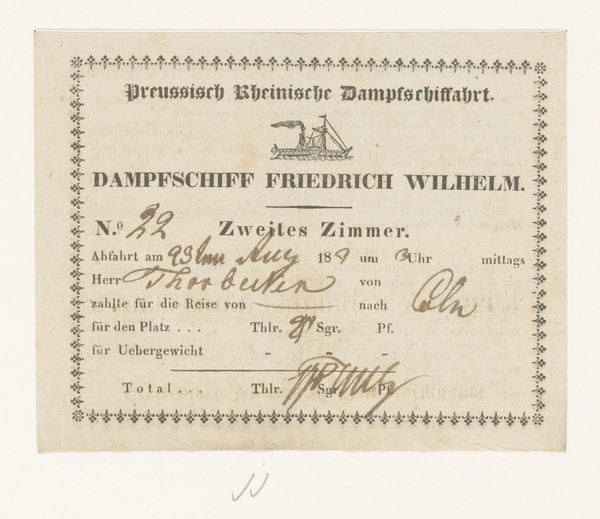 Preussisch Rheinische Dampfschiffahrt.
DAMPFSCHIFF FRIEDRICH WILHELM.
N.º 22 Zweites Zimmer.
Abfahrt am 23 Aug 18 um 3 Uhr mittags
Herr Thorbecken von
zahlte für die Reise von nach Cöln
für den Platz . . . Thlr. Sgr. Pf.
für Uebergewicht - - -
Total . . . Thlr. Sgr. Pf.